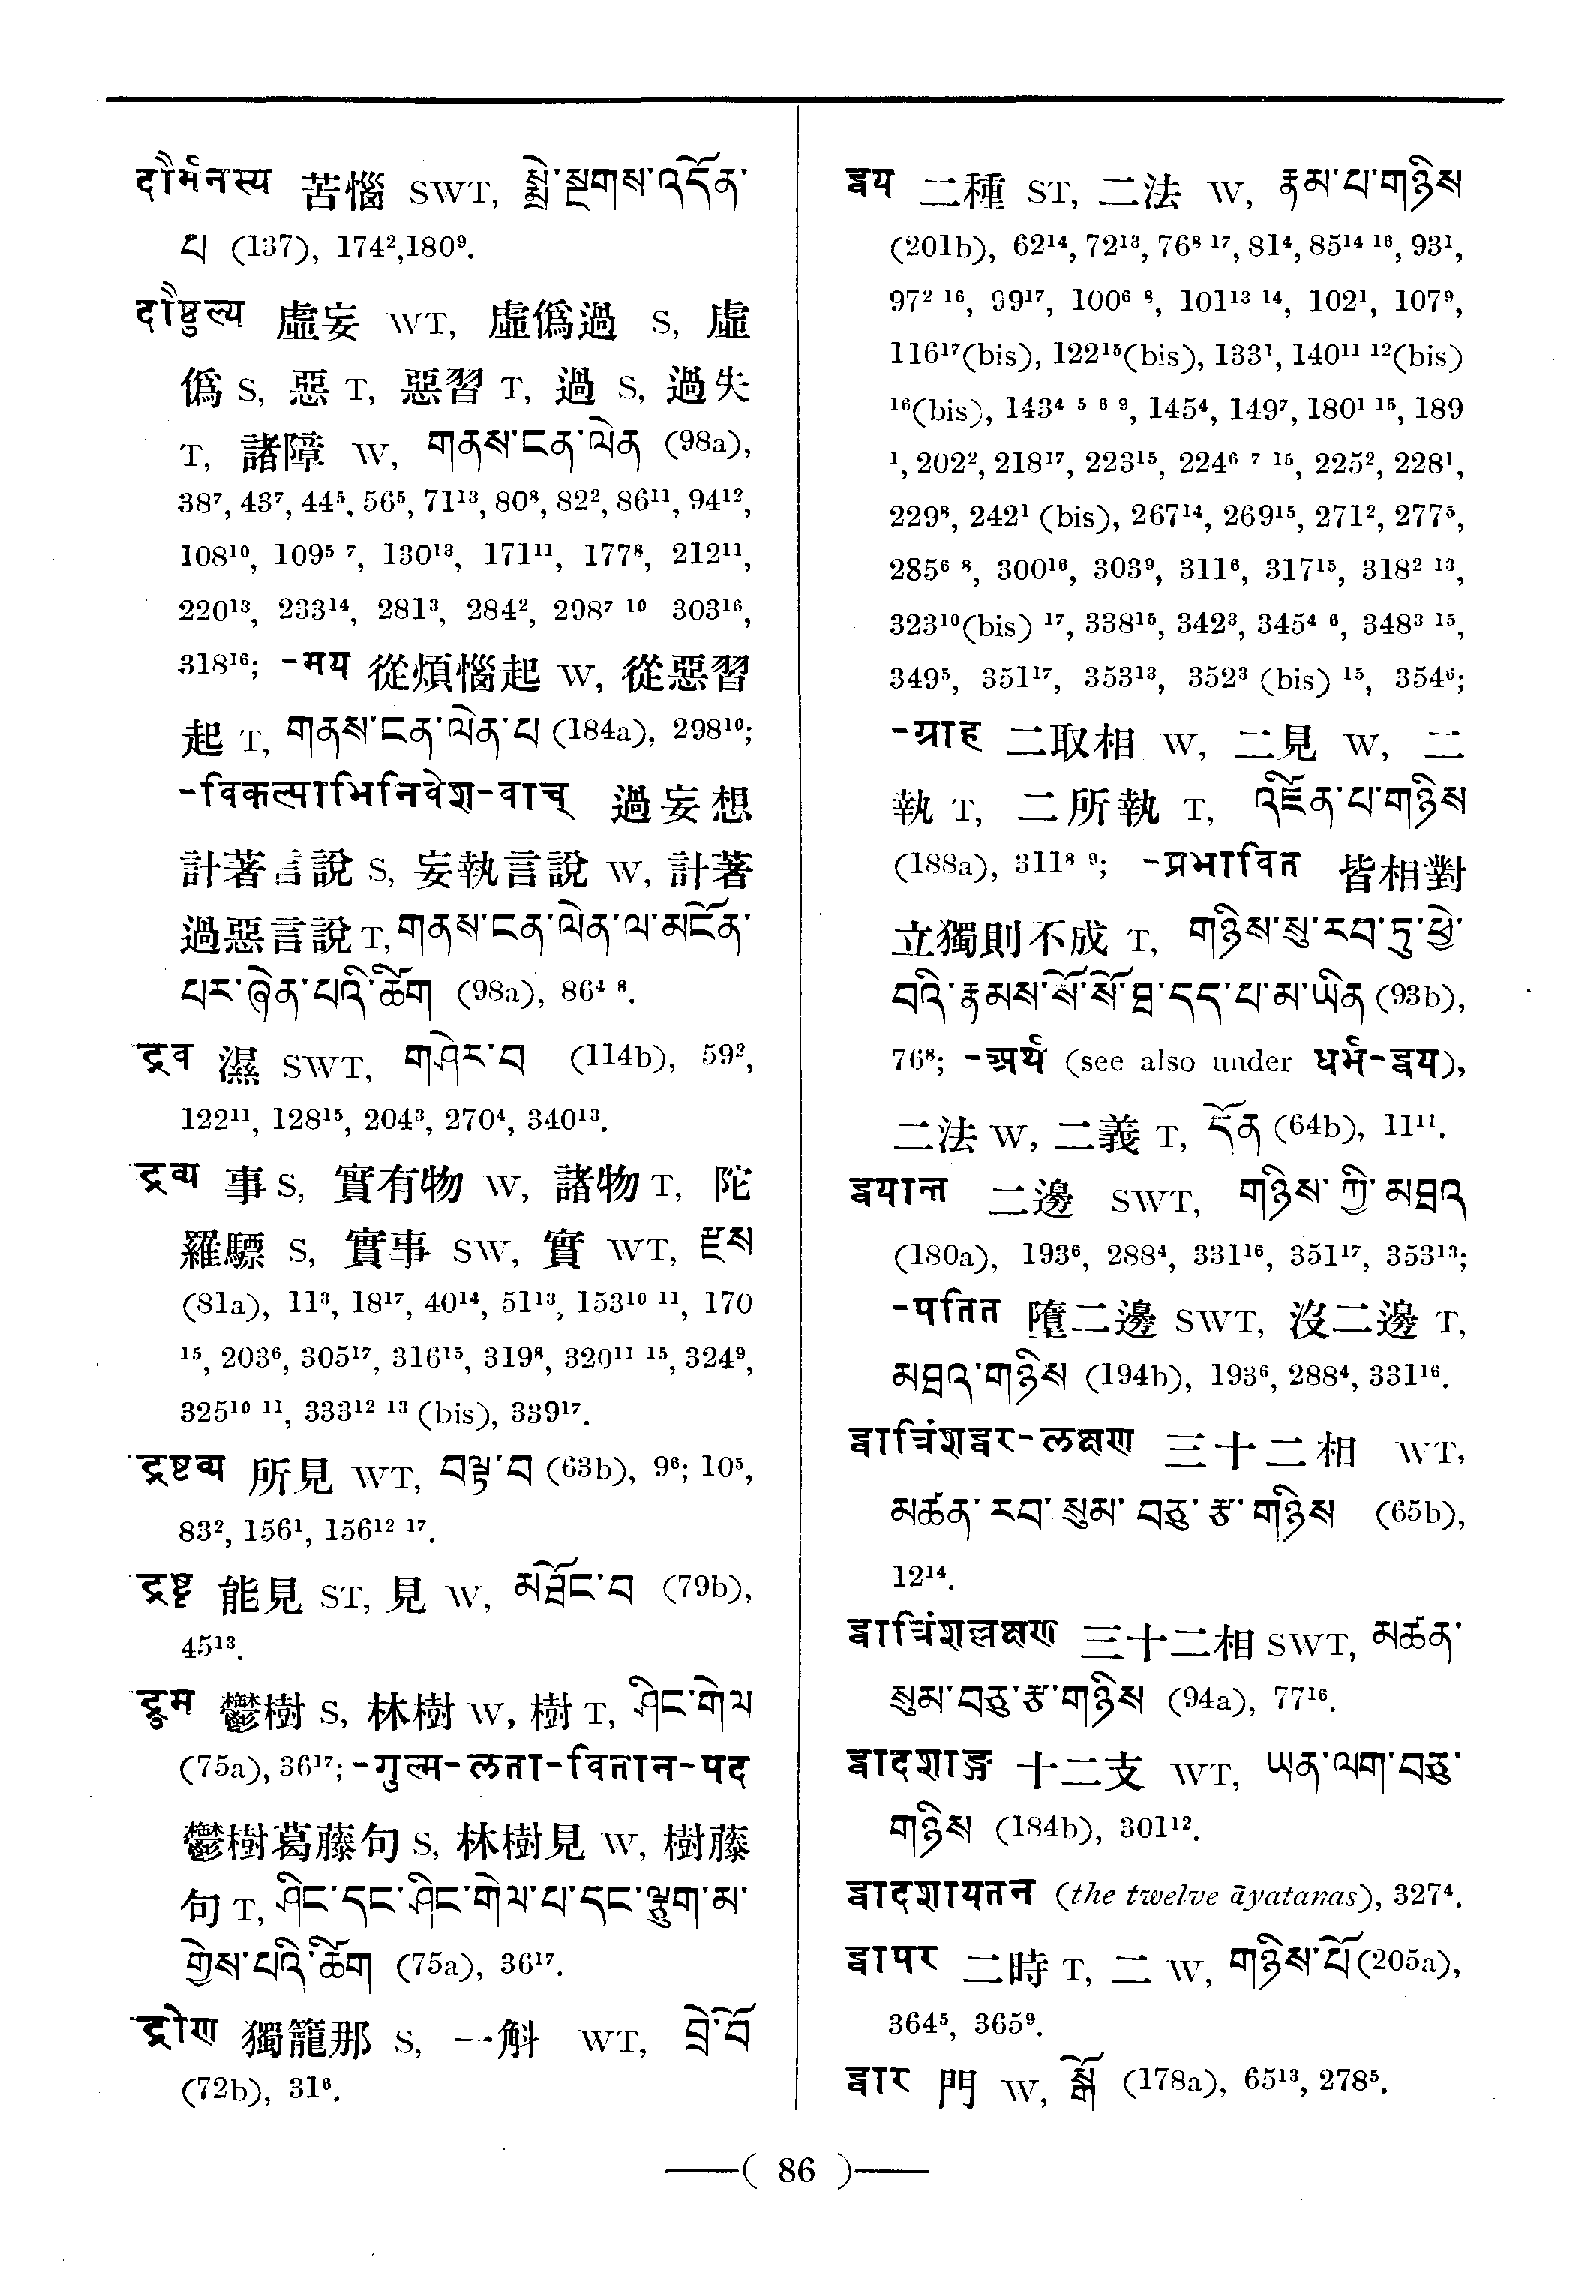 दौर्मनस्य 苦惱 SWT, སྨྲེ་སྔགས་འདོན་
པ (137), 174²,180⁹.
दौष्ठुल्य 虛妄 WT, 虛僞過 S, 虛
僞 S, 惡 T, 惡習 T, 過 S, 過失
T, 諸障 W, གནས་ངན་ལེན (98a),
38⁷, 43⁷, 44⁵, 56⁵, 71¹³, 80⁸, 82², 86¹¹, 94¹²,
108¹⁰, 109⁵ ⁷, 130¹³, 171¹¹, 177⁸, 212¹¹,
220¹³, 233¹⁴, 281³, 284², 298⁷ ¹⁰ 303¹⁶,
318¹⁶; -मय 從煩惱起 W, 從惡習
起 T, གནས་ངན་ལེན་པ (184a), 298¹⁰;
-विकल्पाभिनिवेश-वाच् 過妄想
計著言說 S, 妄執言說 W, 計著
過惡言說 T, གནས་ངན་ལེན་ལ་མངོན་
པར་ཞེན་པའི་ཚིག (98a), 86⁴ ⁸.
द्रव 濕 SWT, གཤེར་བ (114b), 59²,
122¹¹, 128¹⁵, 204³, 270⁴, 340¹³.
द्रव्य 事 S, 實有物 W, 諸物 T, 陀
羅驃 S, 實事 SW, 實 WT, རྫས
(81a), 11³, 18¹⁷, 40¹⁴, 51¹³, 153¹⁰ ¹¹, 170
¹⁵, 203⁶, 305¹⁷, 316¹⁵, 319⁸, 320¹¹ ¹⁵, 324⁹,
325¹⁰ ¹¹, 333¹² ¹³ (bis), 339¹⁷.
द्रष्टव्य 所見 WT, བལྟ་བ (63b), 9⁶; 10⁵,
83², 156¹, 156¹² ¹⁷.
द्रष्टृ 能見 ST, 見 W, མཐོང་བ (79b),
45¹³.
द्रुम 鬱樹 S, 林樹 W, 樹 T, ཤིང་གེལ
(75a), 36¹⁷; -गुल्म-लता-वितान-पद
鬱樹葛藤句 S, 林樹見 W, 樹藤
句 T, ཤིང་དང་ཤིང་གེལ་པ་དང་ལྕུག་མ་
གྱེས་པའི་ཚིག (75a), 36¹⁷.
द्रोण 獨籠那 S, 一斛 WT, བྲེ་བོ
(72b), 31⁶.
द्वय 二種 ST, 二法 W, རྣམ་པ་གཉིས
(201b), 62¹⁴, 72¹³, 76⁸ ¹⁷, 81⁴, 85¹⁴ ¹⁶, 93¹,
97² ¹⁶, 99¹⁷, 100⁶ ⁸, 101¹³ ¹⁴, 102¹, 107⁹,
116¹⁷(bis), 122¹⁵(bis), 133¹, 140¹¹ ¹²(bis)
¹⁶(bis), 143⁴ ⁵ ⁶ ⁹, 145⁴, 149⁷, 180¹ ¹⁵, 189
¹, 202², 218¹⁷, 223¹⁵, 224⁶ ⁷ ¹⁵, 225², 228¹,
229⁸, 242¹ (bis), 267¹⁴, 269¹⁵, 271², 277⁵,
285⁶ ⁸, 300¹⁶, 303⁹, 311⁶, 317¹⁵, 318² ¹³,
323¹⁰(bis) ¹⁷, 338¹⁵, 342³, 345⁴ ⁶, 348³ ¹⁵,
349⁵, 351¹⁷, 353¹³, 352³ (bis) ¹⁵, 354⁶;
-ग्राह 二取相 W, 二見 W, 二
執 T, 二所執 T, འཛིན་པ་གཉིས
(188a), 311⁸ ⁹; -प्रभावित 皆相對
立獨則不成 T, གཉིས་སུ་རབ་ཏུ་ཕྱེ་
བའི་རྣམས་སོ་སོ་ཐ་དད་པ་མ་ཡིན (93b),
76⁸; -अर्थ (see also under धर्म-द्वय),
二法 W, 二義 T, དོན (64b), 11¹¹.
द्वयान्त 二邊 SWT, གཉིས་ཀྱི་མཐའ
(180a), 193⁶, 288⁴, 331¹⁶, 351¹⁷, 353¹³;
-पतित 墮二邊 SWT, 沒二邊 T,
མཐའ་གཉིས (194b), 193⁶, 288⁴, 331¹⁶.
द्वात्रिंशद्वर-लक्षण 三十二相 WT,
མཚན་རབ་སུམ་བཅུ་རྩ་གཉིས (65b),
12¹⁴.
द्वात्रिंशल्लक्षण 三十二相 SWT, མཚན་
སུམ་བཅུ་རྩ་གཉིས (94a), 77¹⁶.
द्वादशाङ्ग 十二支 WT, ཡན་ལག་བཅུ་
གཉིས (184b), 301¹².
द्वादशायतन (the twelve āyatanas), 327⁴.
द्वापर 二時 T, 二 W, གཉིས་པོ (205a),
364⁵, 365⁹.
द्वार 門 W, སྒོ (178a), 65¹³, 278⁵.
—( 86 )—